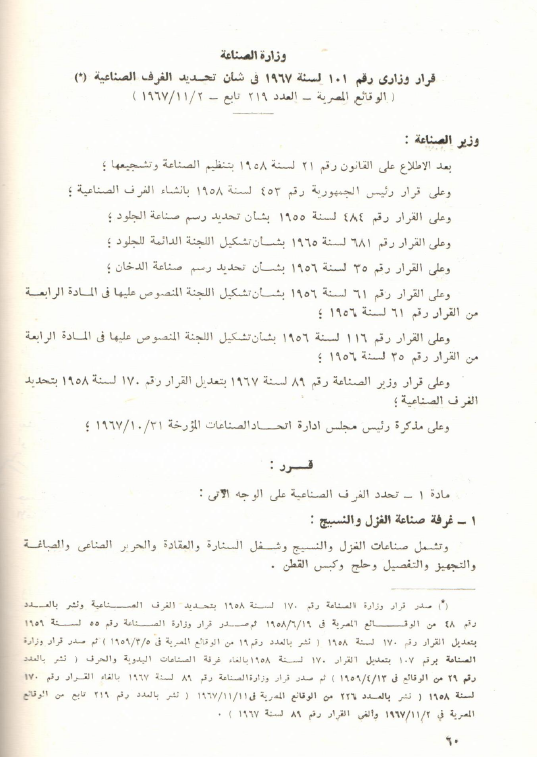 وزارة الصناعة
قرار وزارى رقم ١٠١ لسنة ١٩٦٧ فى شأن تحديد الغرف الصناعية (*)
( الوقائع المصرية ــ العدد ٢١٩ تابع ــ ١٩٦٧/١١/٢ )
وزير الصناعة :
بعد الاطلاع على القانون رقم ٢١ لسنة ١٩٥٨ بتنظيم الصناعة وتشجيعها ؛
وعلى قرار رئيس الجمهورية رقم ٤٥٣ لسنة ١٩٥٨ بانشاء الغرف الصناعية ؛
وعلى القرار رقم ٤٨٤ لسنة ١٩٥٥ بشأن تحديد رسم صناعة الجلود ؛
وعلى القرار رقم ٦٨١ لسنة ١٩٦٥ بشأن تشكيل اللجنة الدائمة للجلود ؛
وعلى القرار رقم ٣٥ لسنة ١٩٥٦ بشأن تحديد رسم صناعة الدخان ؛
وعلى القرار رقم ٦١ لسنة ١٩٥٦ بشأن تشكيل اللجنة المنصوص عليها فى المادة الرابعة
من القرار رقم ٦١ لسنة ١٩٥٦ ؛
وعلى القرار رقم ١١٦ لسنة ١٩٥٦ بشأن تشكيل اللجنة المنصوص عليها فى المادة الرابعة
من القرار رقم ٣٥ لسنة ١٩٥٦ ؛
وعلى قرار وزير الصناعة رقم ٨٩ لسنة ١٩٦٧ بتعديل القرار رقم ١٧٠ لسنة ١٩٥٨ بتحديد
الغرف الصناعية ؛
وعلى مذكرة رئيس مجلس ادارة اتحاد الصناعات المؤرخة ١٩٦٧/١٠/٣١ ؛
قــرر :
مادة ١ ــ تحدد الغرف الصناعية على الوجه الآتى :
١ ــ غرفة صناعة الغزل والنسيج :
وتشمل صناعات الغزل والنسيج وشغل السنارة والعقادة والحرير الصناعى والصباغة
والتجهيز والتفصيل وحلج وكبس القطن .
(*) صدر قرار وزارة الصناعة رقم ١٧٠ لسنة ١٩٥٨ بتحديد الغرف الصناعية ونشر بالعدد
رقم ٤٨ من الوقائع المصرية فى ١٩٥٨/٦/١٩ ثم صدر قرار وزارة الصناعة رقم ٥٥ لسنة ١٩٥٩
بتعديل القرار رقم ١٧٠ لسنة ١٩٥٨ ( نشر بالعدد رقم ١٩ من الوقائع المصرية فى ١٩٥٩/٣/٥ ) ثم صدر قرار وزارة
الصناعة برقم ١٠٧ بتعديل القرار ١٧٠ لسنة ١٩٥٨ بالغاء غرفة الصناعات اليدوية والحرف ( نشر بالعدد
رقم ٢٩ من الوقائع فى ١٩٥٩/٤/١٣ ) ثم صدر قرار وزارة الصناعة رقم ٨٩ لسنة ١٩٦٧ بالغاء القرار رقم ١٧٠
لسنة ١٩٥٨ ( نشر بالعدد ٢٢٦ من الوقائع المصرية فى ١٩٦٧/١١/١١ ) ( نشر بالعدد رقم ٢١٩ تابع من الوقائع
المصرية فى ١٩٦٧/١١/٢ والغى القرار رقم ٨٩ لسنة ١٩٦٧ ) .
٦٠